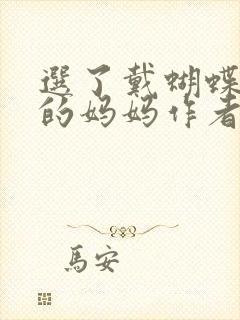 選了戴蝴蝶
的妈妈作者
馬安